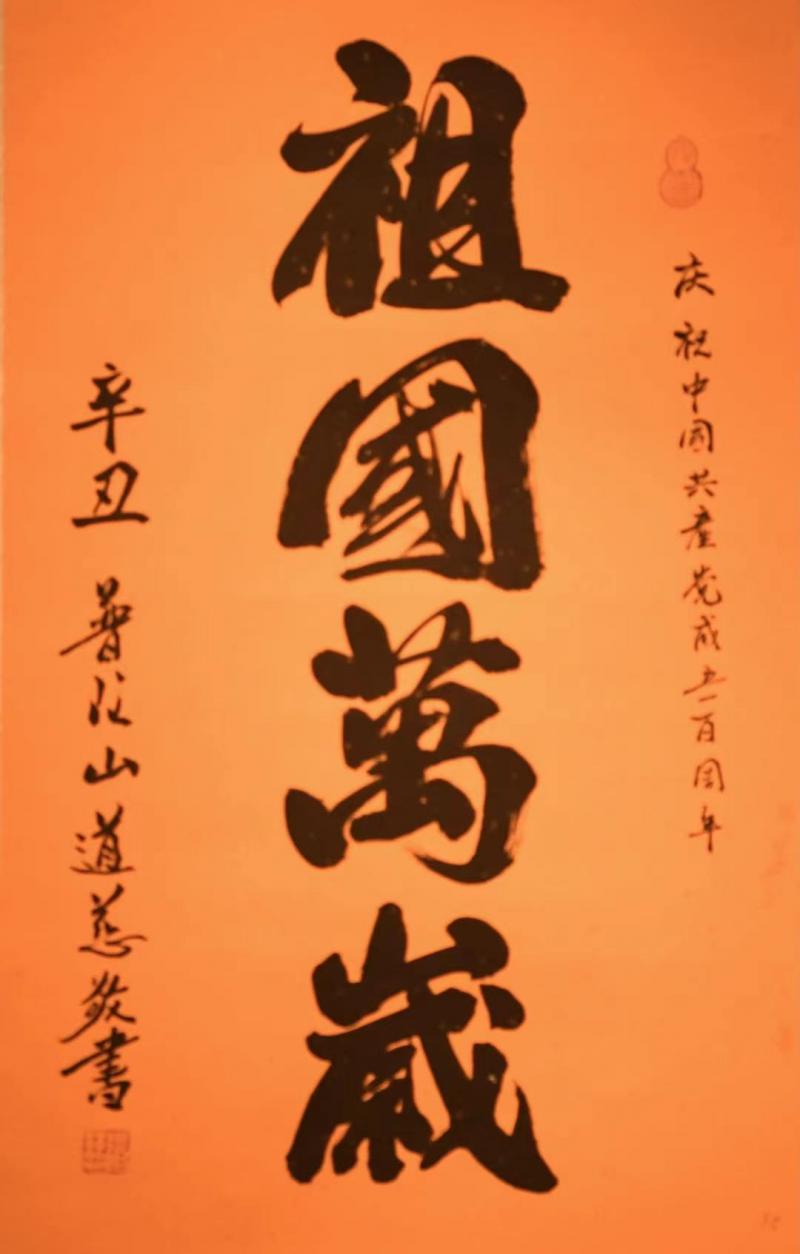 庆祝中國共產党成立一百周年
祖國萬歲
辛丑 普陀山道慈敬書